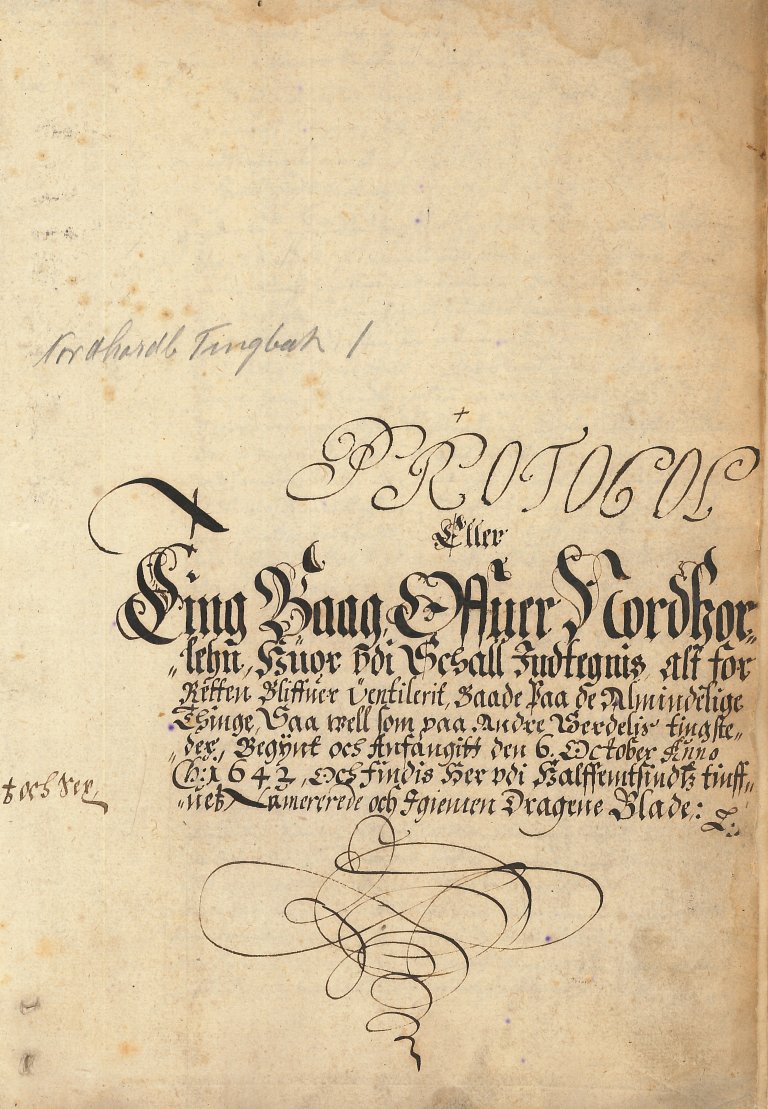 Nordhordl Tingbok 1
PROTOCOL
Eller
Ting Baag, Offuer Nordhor„
„lehn, Huor vdi Schall Indtegnis, alt for
Retten Bliffuer Ventilerit, Baade paa de Almindelige
Thinge, Saa well som paa Andre Werdelis tingste„
„der, Begÿnt och Anfangitt den 6. October Anno
Ch: 1642, Och findis Her vdi Halffemtsindtz tiuff„
„uetz Numererede och Igiemen Dragene Blade:
och Sex